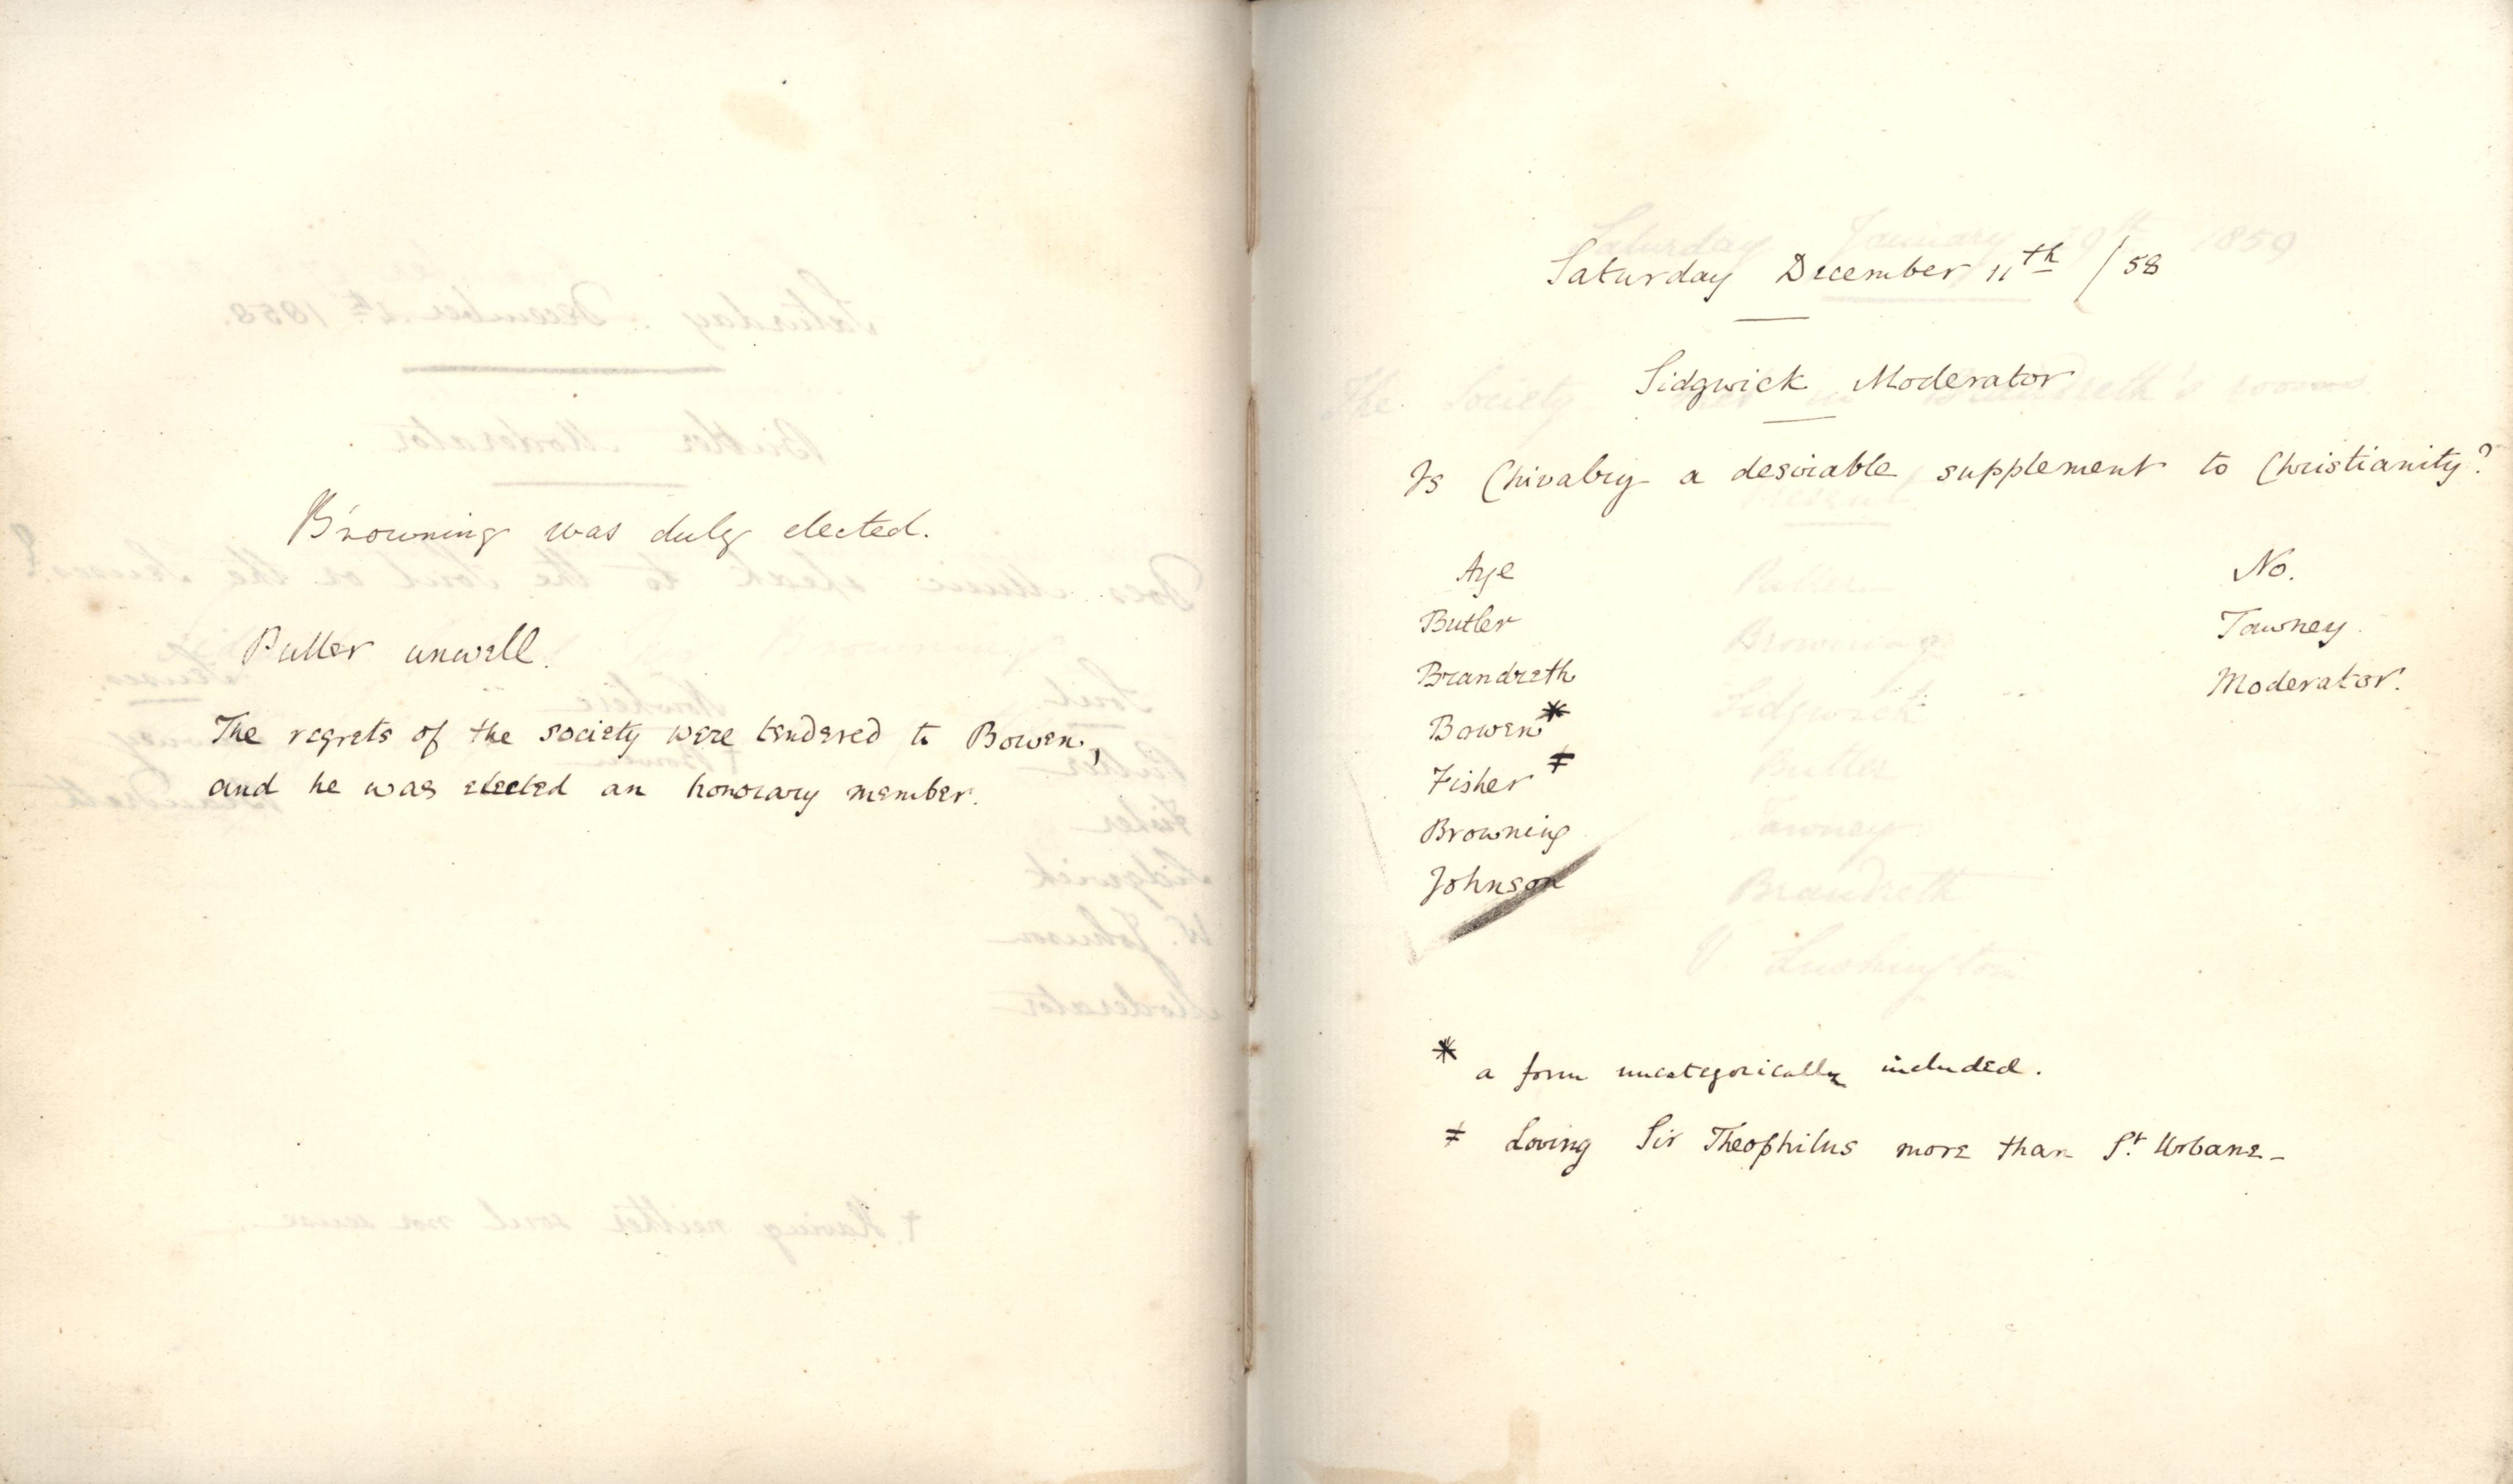 Browning was duly elected.
Puller unwell.
The regrets of the society were tendered to Bowen,
and he was elected an honorary member.
Saturday December 11th /58
Sidgwick Moderator
Is Chivalry a desirable supplement to Christianity?
Aye No.
Butler Tawney.
Brandreth Moderator.
Bowen*
Fisher ‡
Browning
Johnson
* a form uncategorically included.
‡ Loving Sir Theophilus more than St. Urbane-